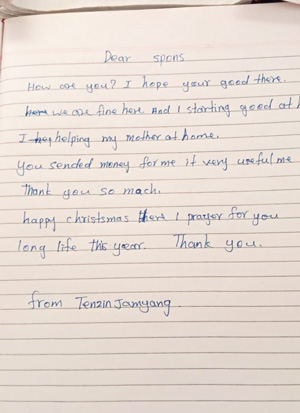 Dear spons
How are you? I hope your good there.
we are fine here. And I starting good at h
I helping my mother at home.
You sended money for me it very useful me
Thank you so mach.
happy christsmas there I prayer for you
long life this year. Thank you.
from Tenzin Jamyang